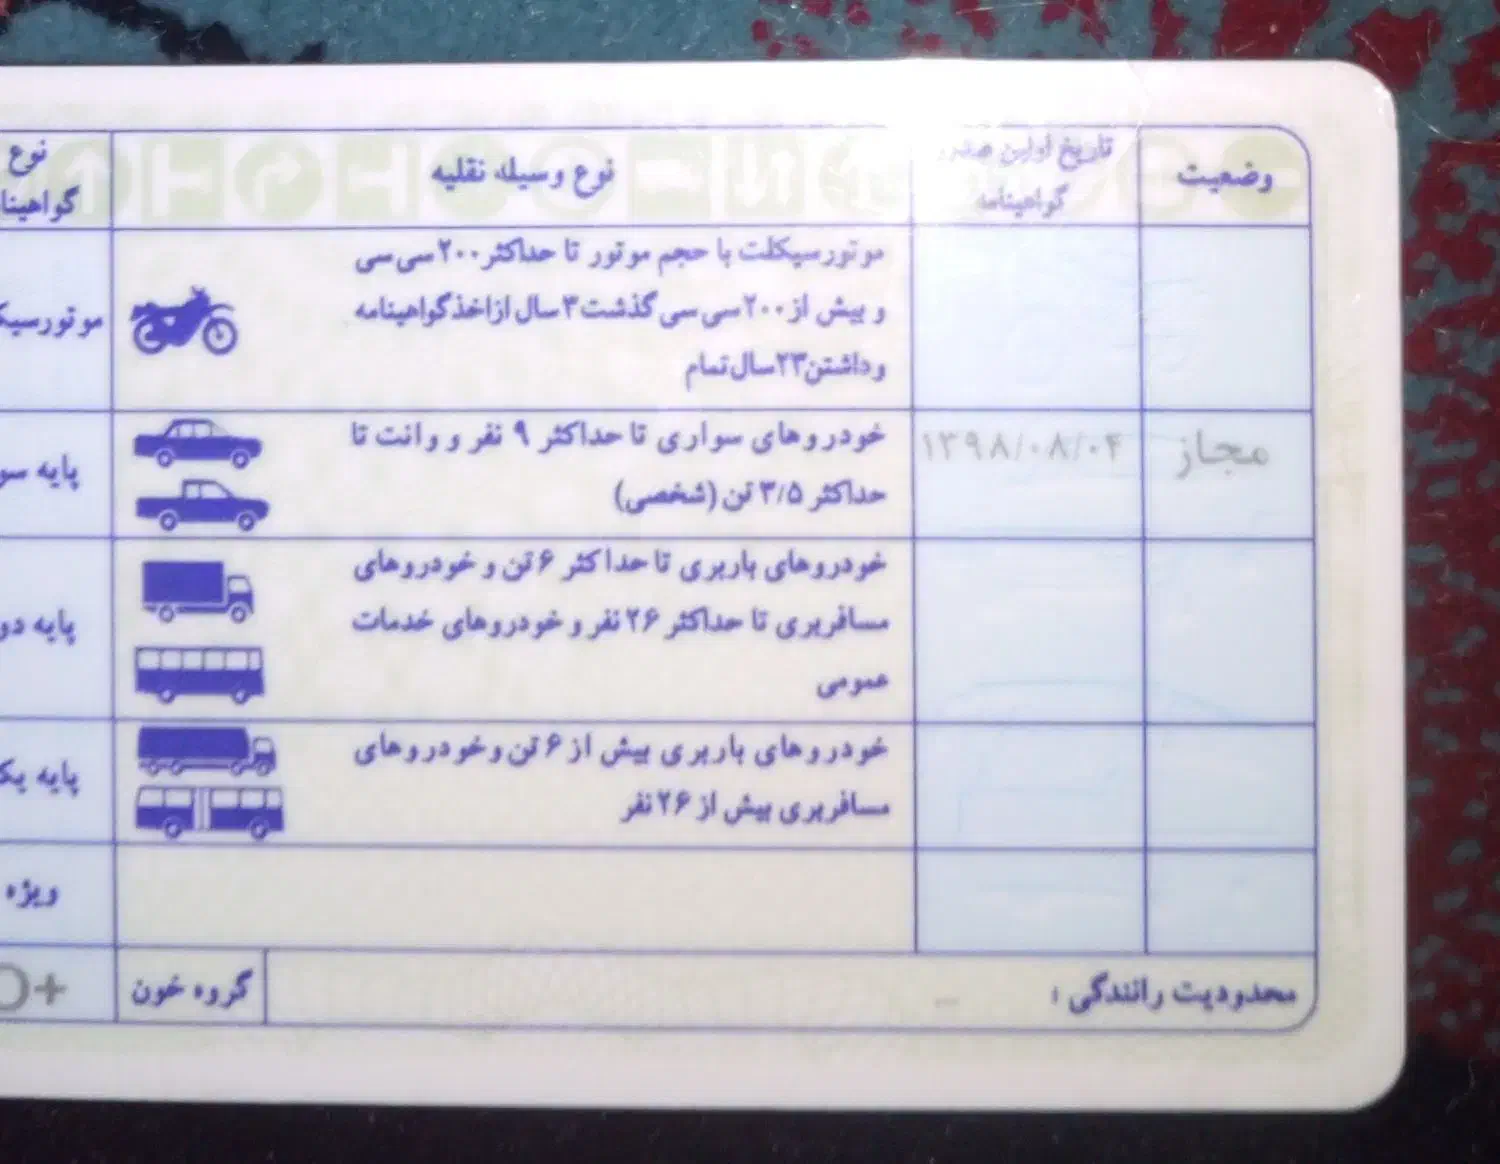 وضعیت
تاریخ اولین صدور
گواهینامه
نوع وسیله نقلیه
نوع
گواهینا
موتورسیکلت با حجم موتور تا حداکثر ۲۰۰ سی سی
و بیش از ۲۰۰ سی سی گذشت ۳ سال از اخذ گواهینامه
و داشتن ۲۳ سال تمام
موتورسیک
مجاز
۱۳۹۸/۰۸/۰۴
خودروهای سواری تا حداکثر ۹ نفر و وانت تا
حداکثر ۳/۵ تن (شخصی)
پایه سو
خودروهای باربری تا حداکثر ۶ تن و خودروهای
مسافربری تا حداکثر ۲۶ نفر و خودروهای خدمات
عمومی
پایه دو
خودروهای باربری بیش از ۶ تن و خودروهای
مسافربری بیش از ۲۶ نفر
پایه یک
ویژه
محدودیت رانندگی : -
گروه خون
O+